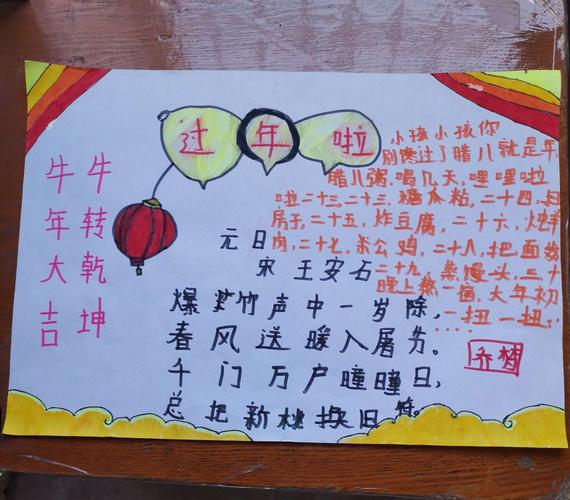 过年啦
牛转乾坤
牛年大吉
小孩小孩你
别馋过了腊八就是年
腊八粥,喝几天,哩哩啦
啦二十三,二十三,糖瓜粘,二十四,扫
房子,二十五,炸豆腐,二十六,炖羊
肉,二十七,杀公鸡,二十八,把面发
二十九,蒸馒头,三十
晚上熬一宿,大年初
一扭一扭……
元日
宋 王安石
爆竹声中一岁除,
春风送暖入屠苏。
千门万户曈曈日,
总把新桃换旧符。